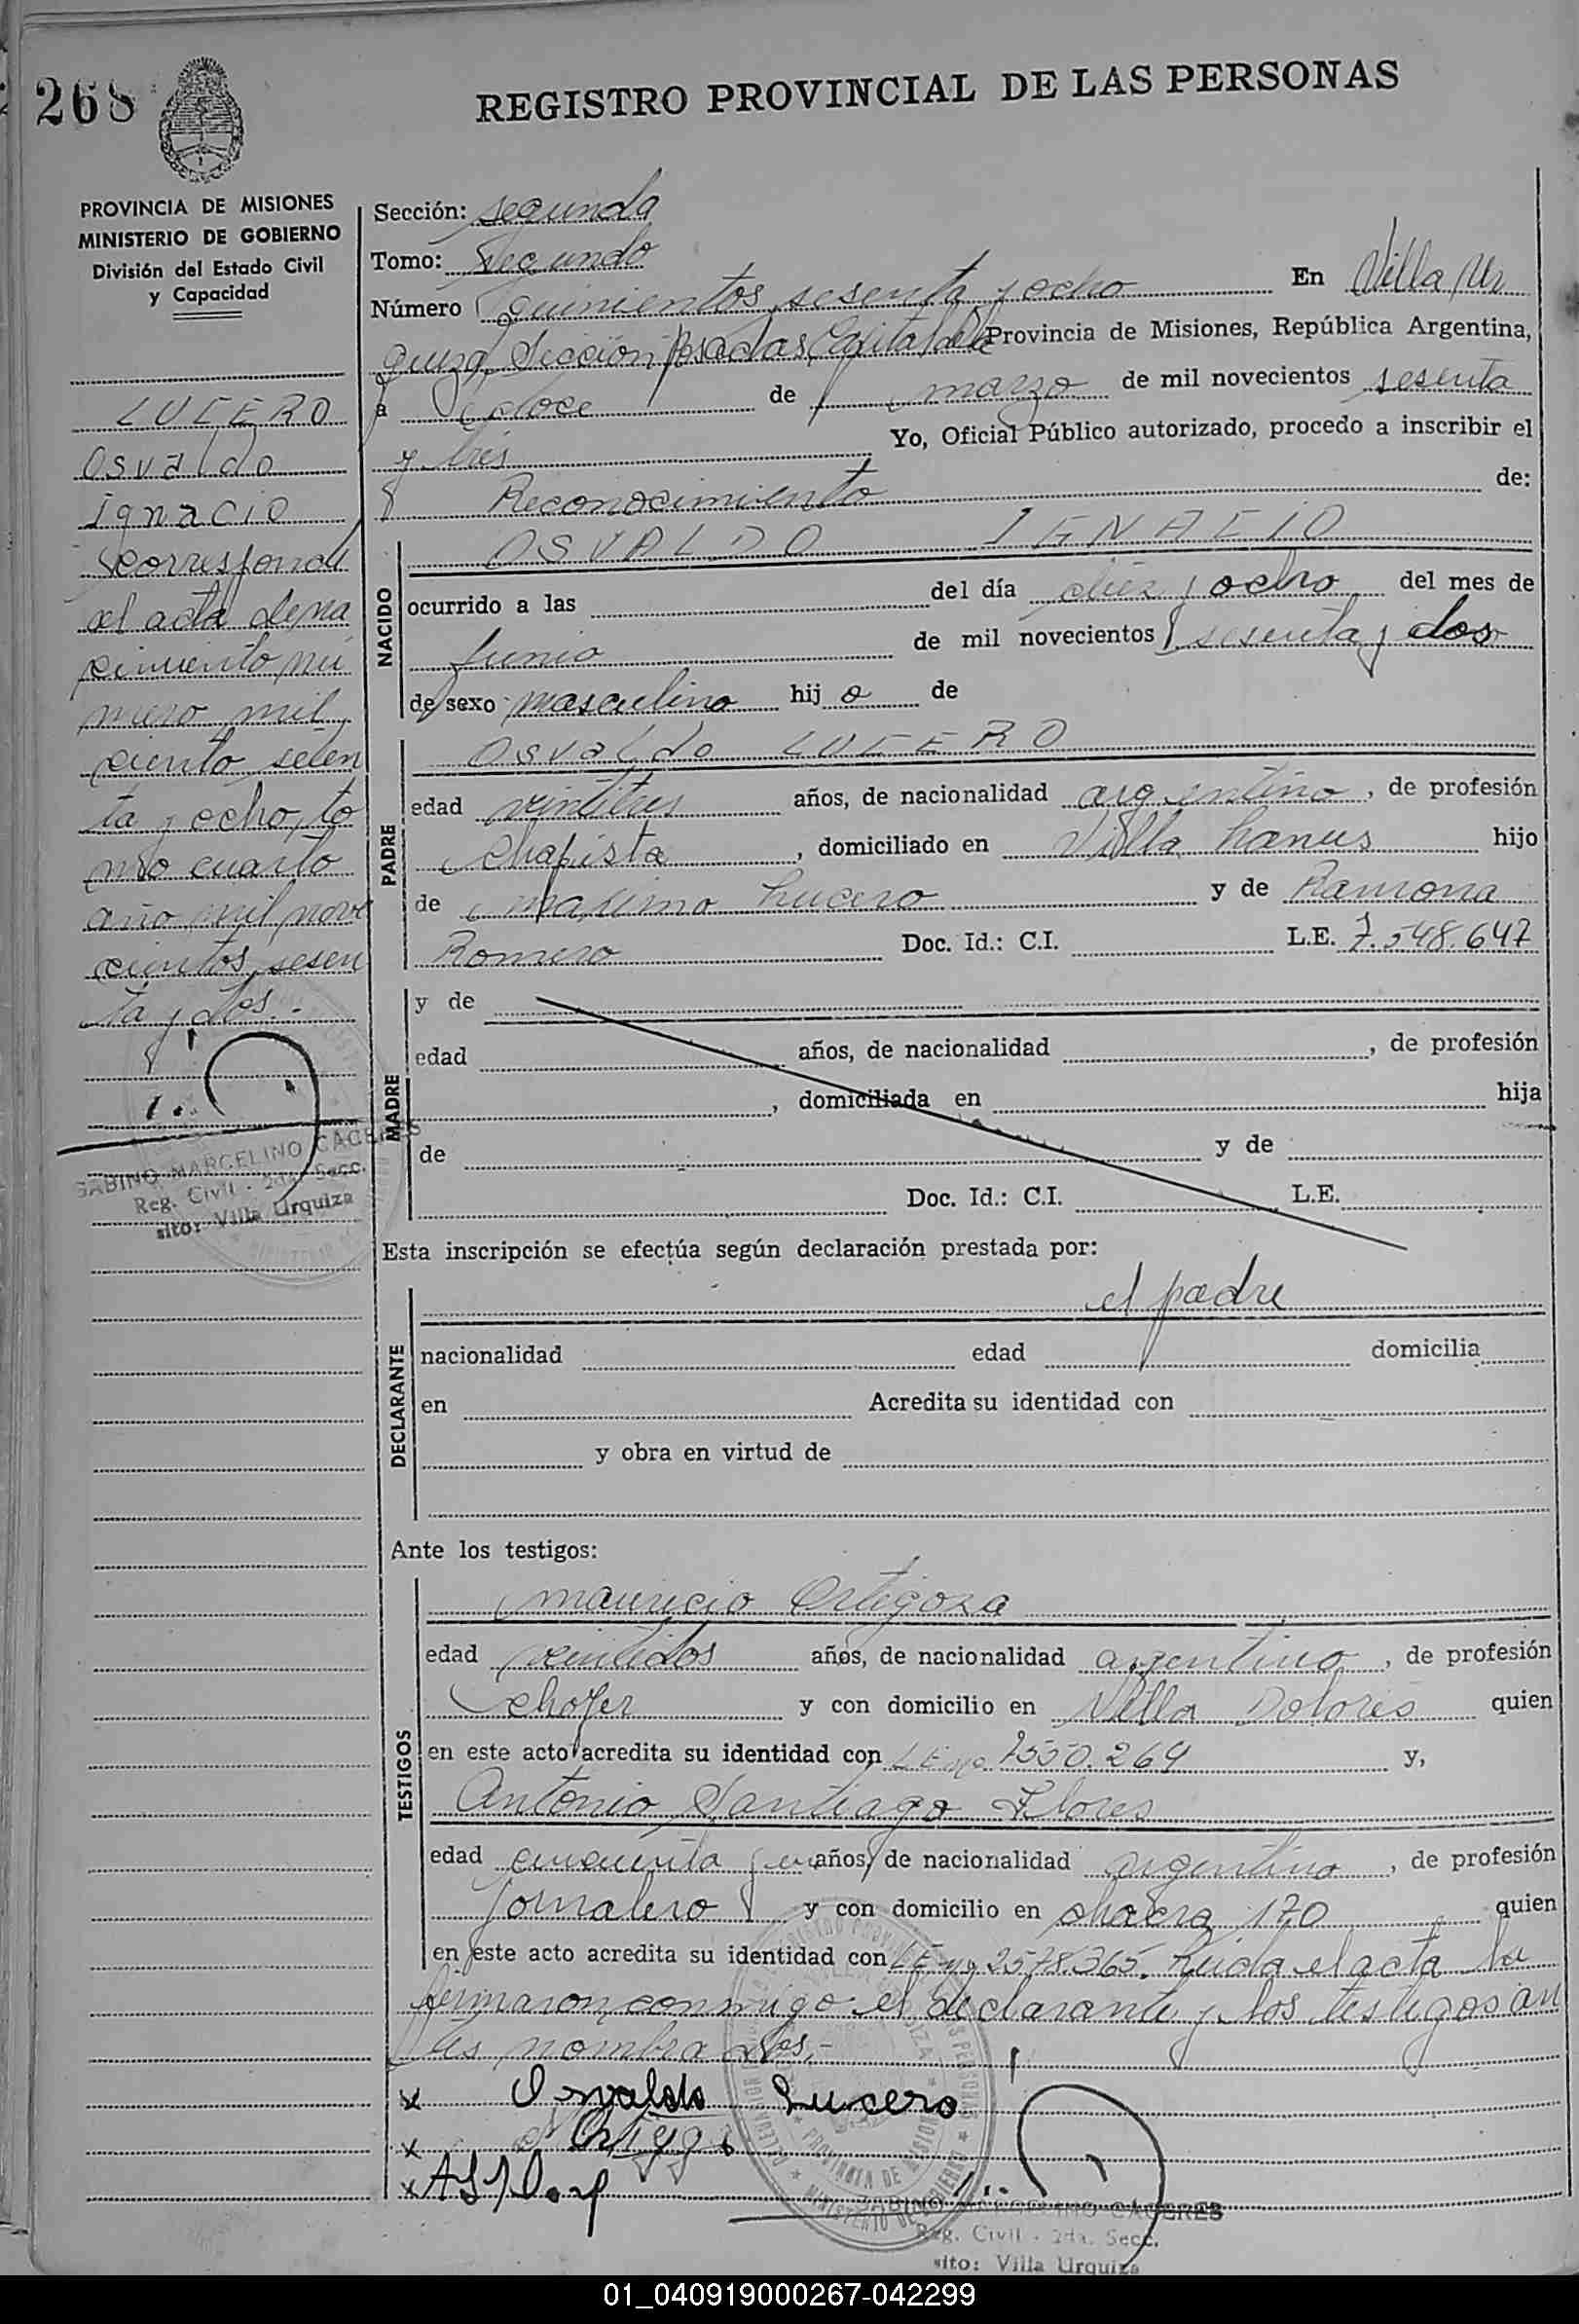 268
REGISTRO PROVINCIAL DE LAS PERSONAS
PROVINCIA DE MISIONES
MINISTERIO DE GOBIERNO
División del Estado Civil
y Capacidad
LUCERO
Osvaldo
Ignacio
Corresponde
al acta de na
cimiento nú
mero mil
ciento seten
ta y ocho, to
mo cuarto
año mil nove
cientos sesen
ta y dos.-
SABINO MARCELINO CACERES
Reg. Civil - 2da. Secc.
sito: Villa Urquiza
Sección: segunda
Tomo: segundo
Número quinientos sesenta y ocho En Villa Ur
quiza, Sección Posadas, Capital de la Provincia de Misiones, República Argentina,
a doce de marzo de mil novecientos sesenta
y tres Yo, Oficial Público autorizado, procedo a inscribir el
Reconocimiento de:
NACIDO
OSVALDO IGNACIO
ocurrido a las del día diez y ocho del mes de
Junio de mil novecientos sesenta y dos
de sexo masculino hijo de
PADRE
Osvaldo LUCERO
edad veintitres años, de nacionalidad argentino, de profesión
Chapista, domiciliado en Villa Lanus hijo
de Maximo Lucero y de Ramona
Romero Doc. Id.: C.I. L.E. 7.548.647
MADRE
y de
edad años, de nacionalidad , de profesión
, domiciliada en hija
de y de
Doc. Id.: C.I. L.E.
Esta inscripción se efectúa según declaración prestada por:
DECLARANTE
el padre
nacionalidad edad domicilia
en Acredita su identidad con
y obra en virtud de
Ante los testigos:
TESTIGOS
Mauricio Ortigoza
edad veintidos años, de nacionalidad argentino, de profesión
Chofer y con domicilio en Villa Dolores quien
en este acto acredita su identidad con LE nº 7550.264 y,
Antonio Santiago Flores
edad cincuenta y un años, de nacionalidad argentino, de profesión
Jornalero y con domicilio en chacra 170 quien
en este acto acredita su identidad con LE nº 2578.365. Leida el acta la
firmaron conmigo el declarante y los testigos an
tes nombrados.-
x Osvaldo Lucero
x
x
SABINO MARCELINO CACERES
Reg. Civil - 2da. Secc.
sito: Villa Urquiza
01_040919000267-042299